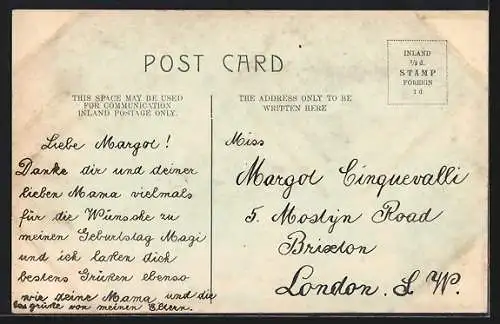 POST CARD
INLAND
½ d.
STAMP
FOREIGN
1 d
THIS SPACE MAY BE USED
FOR COMMUNICATION
INLAND POSTAGE ONLY.
THE ADDRESS ONLY TO BE
WRITTEN HERE
Liebe Margot!
Danke dir und deiner
lieben Mama vielmals
für die Wünsche zu
meinen Geburtstag Magi
und ich laßen dich
bestens Grüßen ebenso
wie deine Mama und die
grüße von meinen Eltern.
Miss
Margot Cinquevalli
5. Mostyn Road
Brixton
London. S. W.